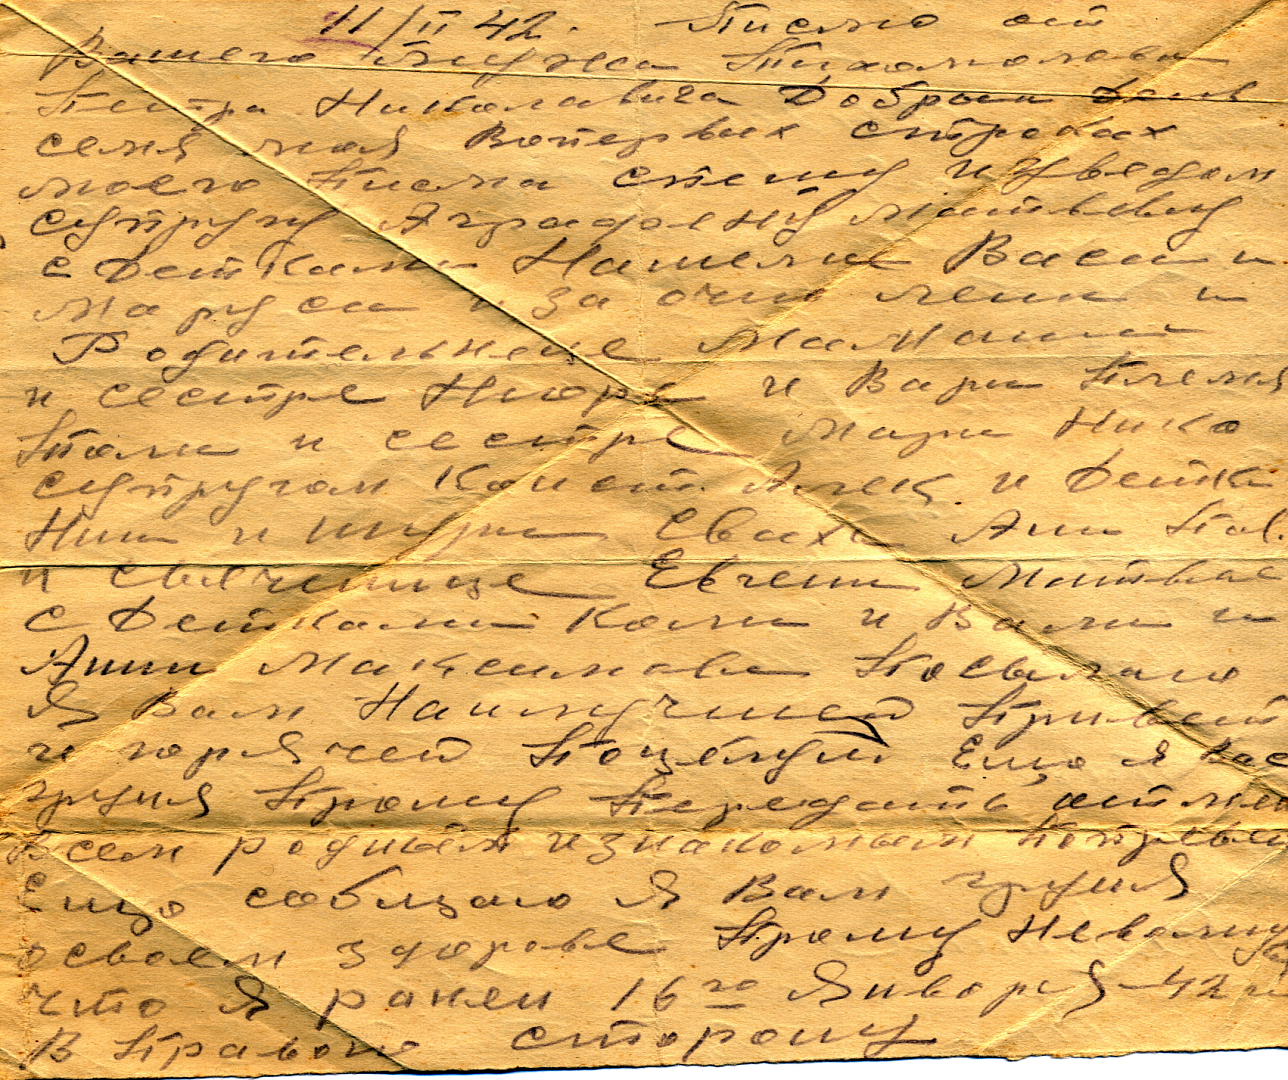 11/II 42. Писмо от
Вашего Мужа Тихомолова
Петра Николавича Добрый День
семя моя Вопервых строках
моего Писма спешу изведом
супругу Аграфену Матьвевну
с Детками Нашеми Васи и
Маруси и за очно лени и
Родительнеце Мамаши
и сестре Нюре и Вари Племя
Толи и сестре Мари Нико
супругом Конст. Алек и Детки
Нии и Шуры Свахе Ани Пав.
и свяченице Евгени Матвее
с Детками Коли и Вали и
Анни Максимовне Посылаю
Я Вам Наилучшей Привет
и горячей Поцелуй Ещо я Вас
групя Прошу Передать от меня
Всем родным и знакомым Попривету
Ещо собщаю Я Вам групя
освоем здоровье Прошу Неволнуй
что Я ранен 16го Января-42 г
В Правою сторону